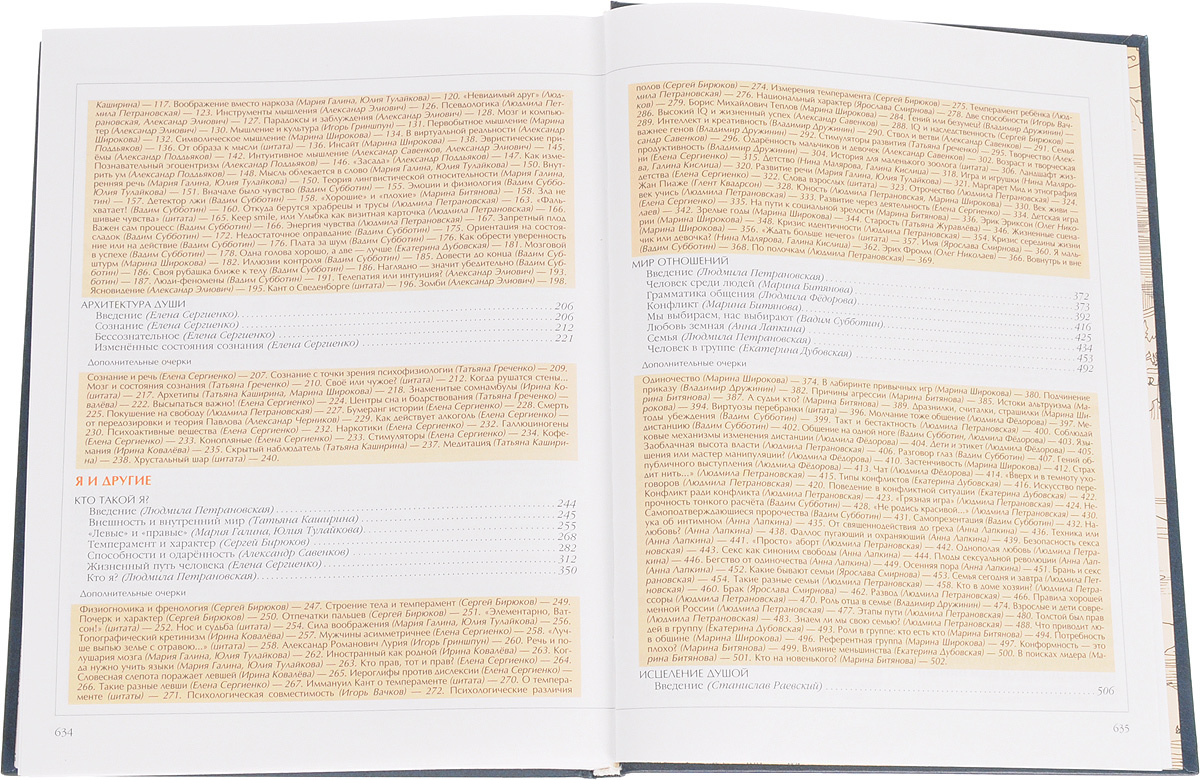 Каширина) — 117. Воображение вместо наркоза (Мария Галина, Юлия Тулайкова) — 120. «Невидимый друг» (Люд-
мила Петрановская) — 123. Инструменты мышления (Александр Элиович) — 126. Псевдологика (Людмила Пет-
рановская, Александр Элиович) — 127. Парадоксы и заблуждения (Александр Элиович) — 128. Мозг и компью-
тер (Александр Элиович) — 130. Мышление и культура (Игорь Гриншпун) — 131. Первобытное мышление (Марина
Широкова) — 132. Сценическое мышление (Марина Широкова) — 134. В виртуальной реальности (Александр
Поддьяков) — 136. От образа к мысли (цитата) — 136. Инсайт (Марина Широкова) — 138. Эвристические при-
ёмы (Александр Поддьяков) — 142. Интуитивное мышление (Александр Савенков, Александр Элиович) — 145.
Познавательный эгоцентризм (Александр Поддьяков) — 146. «Засада» (Александр Поддьяков) — 147. Как изме-
рить ум (Александр Поддьяков) — 148. Мысль облекается в слово (Мария Галина, Юлия Тулайкова) — 150. Внут-
ренняя речь (Мария Галина, Юлия Тулайкова) — 150. Теория лингвистической относительности (Мария Галина,
Юлия Тулайкова) — 151. Вначале было чувство (Вадим Субботин) — 155. Эмоции и физиология (Вадим Суббо-
тин) — 157. Детектор лжи (Вадим Субботин) — 158. «Хорошие» и «плохие» (Марина Битянова) — 158. Зла не
хватает! (Вадим Субботин) — 160. Откуда берутся храбрецы и трусы (Людмила Петрановская) — 163. «Фаль-
шивые чувства» (цитата) — 165. Keep smile, или Улыбка как визитная карточка (Людмила Петрановская) — 166.
Важен сам процесс (Вадим Субботин) — 166. Энергия чувства (Людмила Петрановская) — 167. Запретный плод
сладок (Вадим Субботин) — 172. Недостаточное оправдание (Вадим Субботин) — 175. Ориентация на состоя-
ние или на действие (Вадим Субботин) — 176. Плата за шум (Вадим Субботин) — 176. Как обрести уверенность
в успехе (Вадим Субботин) — 178. Одна голова хорошо, а две — лучше (Екатерина Дубовская) — 181. Мозговой
штурм (Марина Широкова) — 182. Иллюзия контроля (Вадим Субботин) — 185. Довести до конца (Вадим Суб-
ботин) — 186. Своя рубашка ближе к телу (Вадим Субботин) — 186. Наглядно — значит убедительно (Вадим Суб-
ботин) — 187. Люди-феномены (Вадим Субботин) — 191. Телепатия или интуиция? (Александр Элиович) — 193.
Ясновидение (Александр Элиович) — 195. Кант о Сведенборге (цитата) — 196. Зомби (Александр Элиович) — 198.
АРХИТЕКТУРА ДУШИ 206
Введение (Елена Сергиенко) 206
Сознание (Елена Сергиенко) 212
Бессознательное (Елена Сергиенко) 221
Изменённые состояния сознания (Елена Сергиенко)
Дополнительные очерки
Сознание и речь (Елена Сергиенко) — 207. Сознание с точки зрения психофизиологии (Татьяна Греченко) — 209.
Мозг и состояния сознания (Татьяна Греченко) — 210. Своё или чужое? (цитата) — 212. Когда рушатся стены...
— 217. Архетипы (Татьяна Каширина, Марина Широкова) — 218. Знаменитые сомнамбулы (Ирина Ко-
валёва) — 222. Высыпаться важно! (Елена Сергиенко) — 224. Центры сна и бодрствования (Татьяна Греченко) —
225. Покушение на свободу (Людмила Петрановская) — 227. Бумеранг истории (Елена Сергиенко) — 228. Смерть
от передозировки и теория Павлова (Александр Черников) — 229. Как действует алкоголь (Елена Сергиенко) —
230. Психоактивные вещества (Елена Сергиенко) — 232. Наркотики (Елена Сергиенко) — 232. Галлюциногены
(Елена Сергиенко) — 233. Конопляные (Елена Сергиенко) — 233. Стимуляторы (Елена Сергиенко) — 234. Кофе-
мания (Ирина Ковалёва) — 235. Скрытый наблюдатель (Татьяна Каширина) — 237. Медитация (Татьяна Кашири-
на) — 238. Хрустальный шар (цитата) — 240.
Я И ДРУГИЕ
КТО ТАКОЙ Я?
Введение (Людмила Петрановская) 244
Внешность и внутренний мир (Татьяна Каширина) 245
«Левые» и «правые» (Мария Галина, Юлия Тулайкова) 255
Темперамент и характер (Сергей Бирюков) 268
Способности и одарённость (Александр Савенков) 282
Жизненный путь человека (Олег Николаев) 312
Кто я? (Людмила Петрановская) 350
Дополнительные очерки
Френология (Сергей Бирюков) — 247. Строение тела и темперамент (Сергей Бирюков) — 249.
Почерк и характер (Сергей Бирюков) — 250. «Отпечатки пальцев (Сергей Бирюков) — 251. «Элементарно, Ват-
сон!» (цитата) — 252. Нос и судьба (цитата) — 254. Сила воображения (Мария Галина, Юлия Тулайкова) — 256.
Топографический кретинизм (Ирина Ковалёва) — 257. Мужчины асимметричнее (Елена Сергиенко) — 258. «Луч-
ше выпью зелье с отравою...» (цитата) — 258. Александр Романович Лурия (Игорь Гриншпун) — 260. Речь и по-
лушария мозга (Мария Галина, Юлия Тулайкова) — 262. Иностранный как родной (Ирина Ковалёва) — 263. Ког-
да нужно учить языки (Мария Галина, Юлия Тулайкова) — 263. Кто прав, тот и прав? (Елена Сергиенко) — 264.
Словесная слепота поражает левшей (Ирина Ковалёва) — 265. Иероглифы против дислексии (Елена Сергиенко) —
266. Такие разные левши (Елена Сергиенко) — 267. Иммануил Кант о темпераменте (цитата) — 270. О темпера-
менте (цитаты) — 271. Психологическая совместимость (Игорь Вачков) — 272. Психологические различия
634
полов (Сергей Бирюков) — 274. Измерения темперамента (Сергей Бирюков) — 275. Темперамент ребёнка (Люд-
мила Петрановская) — 276. Национальный характер (Ярослава Смирнова) — 278. Две способности (Игорь Вач-
ков) — 279. Борис Михайлович Теплов (Марина Широкова) — 284. Гений или умелец? (Владимир Дружинин) —
286. Высокий IQ и жизненный успех (Александр Савенков) — 288. IQ и наследственность (Сергей Бирюков) —
289. Интеллект и креативность (Владимир Дружинин) — 290. Ствол и ветви (Александр Савенков) — 291. Семья
важнее генов (Владимир Дружинин) — 292. Стимулы развития (Татьяна Греченко) — 295. Творчество (Алек-
сандр Савенков) — 296. Одарённость мальчиков и девочек (Александр Савенков) — 302. Возраст и творческая
продуктивность (Владимир Дружинин) — 304. История для маленького зоопарка (цитата) — 306. Ландшафт жиз-
ни (Елена Сергиенко) — 315. Детство (Нина Малярова, Галина Кислица) — 318. Игра и игрушки (Нина Маляро-
ва, Галина Кислица) — 320. Развитие речи (Мария Галина, Юлия Тулайкова) — 321. Маргарет Мид и этнография
детства (Елена Сергиенко) — 322. Слова взрослых (цитата) — 323. Отрочество (Людмила Петрановская) — 324.
Жан Пиаже (Глент Квадрсон) — 328. Юность (Людмила Петрановская) — 330. Век живи —
век учись (Людмила Петрановская) — 333. Развитие через деятельность (Елена Сергиенко) — 334. Детская игра
(Елена Сергиенко) — 335. На пути к социальной зрелости (Марина Битянова) — 336. Эрик Эриксон (Олег Нико-
лаев) — 342. Зрелые годы (Марина Широкова) — 344. Старость (Татьяна Журавлёва) — 346. Жизненные сцена-
рии (Марина Широкова) — 348. Кризис идентичности (Людмила Петрановская) — 354. Кризис середины жизни
(Марина Широкова) — 356. «Ждать больше нечего» (цитата) — 357. Имя (Ярослава Смирнова) — 360. Я маль-
чик или девочка? (Нина Малярова, Галина Кислица) — 362. Эрих Фромм (Олег Николаев) — 366. Вовнутрь и вне
— 368. По полочкам (Людмила Петрановская) — 369.
МИР ОТНОШЕНИЙ
Введение (Людмила Петрановская) 372
Человек среди людей (Марина Битянова) 373
Грамматика общения (Людмила Фёдорова) 392
Конфликт (Марина Битянова) 416
Мы выбираем, нас выбирают (Вадим Субботин) 425
Любовь земная (Анна Лапкина) 434
Семья (Людмила Петрановская) 453
Человек в группе (Екатерина Дубовская) 492
Дополнительные очерки
Одиночество (Марина Широкова) — 374. В лабиринте привычных игр (Марина Широкова) — 380. Подчинение
приказу (Владимир Дружинин) — 382. Причины агрессии (Марина Битянова) — 385. Истоки альтруизма (Ма-
рина Битянова) — 387. А судьи кто? (Марина Битянова) — 389. Дразнилки, считалки, страшилки (Марина Ши-
рокова) — 394. Виртуозы перебранки (цитата) — 396. Молчание тоже общение (Людмила Фёдорова) — 397. Ме-
тоды убеждения (Вадим Субботин) — 399. Такт и бестактность (Людмила Петрановская) — 400. Соблюдая
дистанцию (Вадим Субботин) — 402. Общение на высшей ноте (Вадим Субботин, Людмила Фёдорова) — 403. Язы-
ковые механизмы изменения дистанции (Людмила Фёдорова) — 404. Дети и этикет (Людмила Фёдорова) — 405.
Заоблачная высота власти (Людмила Петрановская) — 406. Разговор глаз (Вадим Субботин) — 407. Гений об-
щения или мастер манипуляции? (Людмила Фёдорова) — 410. Застенчивость (Марина Широкова) — 412. Страх
публичного выступления (Людмила Фёдорова) — 413. Чат (Людмила Фёдорова) — 414. «Вверх и в темноту ухо-
дит нить...» (Людмила Петрановская) — 415. Типы конфликтов (Екатерина Дубовская) — 416. Искусство пере-
говоров (Людмила Петрановская) — 420. Поведение в конфликтной ситуации (Екатерина Дубовская) — 422.
Конфликт ради конфликта (Людмила Петрановская) — 423. «Грязная игра» (Людмила Петрановская) — 424. Не-
прочность тонкого расчёта (Вадим Субботин) — 428. «Не родись красивой...» (Людмила Петрановская) — 430.
Самоподтверждающиеся пророчества (Вадим Субботин) — 431. Самопрезентация (Вадим Субботин) — 432. На-
ука об интимном (Анна Лапкина) — 435. От священнодейства до греха (Анна Лапкина) — 436. Техника или
любовь? (Анна Лапкина) — 438. Фаллос пугающий и охраняющий (Анна Лапкина) — 439. Безопасность секса
(Анна Лапкина) — 441. «Просто» аборт (Людмила Петрановская) — 442. Однополая любовь (Людмила Петра-
новская) — 443. Секс как синоним свободы (Анна Лапкина) — 444. Плоды сексуальной революции (Анна Лап-
кина) — 446. Бегство от одиночества (Анна Лапкина) — 449. Осенняя пора (Анна Лапкина) — 451. Брань и секс
(Анна Лапкина) — 452. Какие бывают семьи (Ярослава Смирнова) — 453. Семья сегодня и завтра (Людмила Пет-
рановская) — 454. Такие разные семьи (Людмила Петрановская) — 458. Кто в доме хозяин? (Людмила Петра-
новская) — 460. Брак (Ярослава Смирнова) — 462. Развод (Людмила Петрановская) — 466. Правила хорошей
ссоры (Людмила Петрановская) — 470. Роль отца в семье (Владимир Дружинин) — 474. Взрослые и дети совре-
менной России (Людмила Петрановская) — 477. Этапы пути (Людмила Петрановская) — 480. Толстой был прав
(Людмила Петрановская) — 483. Знаем ли мы свою семью? (Людмила Петрановская) — 488. Что приводит лю-
дей в группу (Екатерина Дубовская) — 493. Роли в группе: кто есть кто (Марина Битянова) — 494. Потребность
в общине (Марина Широкова) — 496. Референтная группа (Марина Широкова) — 497. Конформность — это
плохо? (Марина Битянова) — 499. Влияние меньшинства (Екатерина Дубовская) — 500. В поисках лидера (Ма-
рина Битянова) — 501. Кто на новенького? (Марина Битянова) — 502.
ИСЦЕЛЕНИЕ ДУШОЙ
Введение (Станислав Раевский) 506
635